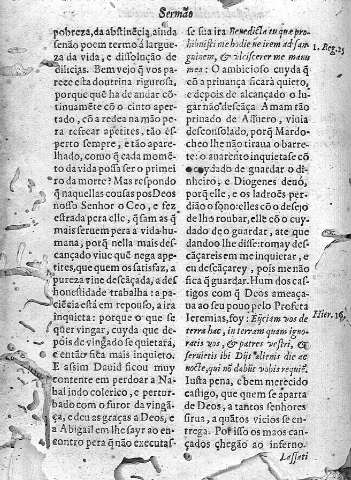 Sermão
pobreza, da abstinẽcia, ainda
senão poem termo á largue-
za da vida, e dissolução de
dilicias. Bem vejo q̃ vos pa-
rece esta doutrina rigurosa,
porque quẽ ha de andar cõ-
tinuamẽte cõ o cinto aper-
tado, cõ a redea na mão pe-
ra refrear apetites, tão es-
perto sempre, e tão apare-
lhado, como q̃ cada momẽ-
to da vida possa ser o primei-
ro da morte? Mas respondo
q̃ naquellas cousas pos Deos
nosso Senhor o Ceo, e fez
estrada pera elle, q̃ sam as q̃
mais seruem pera a vida hu-
mana, porq̃ nella mais des-
cançado viue quẽ nega ape-
tites, que quem os satisfaz, a
pureza viue descãçada, a des
honestidade trabalha, a pa-
ciẽcia está em repouso, a ira
inquieta: porque o que se
quer vingar, cuyda que de-
pois de vingado se quietará,
e entãõ fica mais inquieto.
E assim Dauid ficou muy
contente em perdoar a Na-
bal indo colerico, e pertur-
bado com o furor da vingã-
ça, e deu as graças a Deos, e
a Abigail em lhe sayr ao en-
contro pera q̃ não executas-
se sua ira Benedicta tu quæ pro-
hibuisti me hodie ne irem ad san-
guinem, & vlciscerer me manu
mea: O ambicioso cuyda q̃
cõ a priuança ficará quieto,
e depois de alcançado o lu-
gar não descãça. Amam tão
priuado de Assuero, viuia
desconsolado, porq̃ Mardo-
cheo lhe não tiraua o barre-
te: o auarento inquieta se cõ
o cuydado de guardar o di-
nheiro; e Diogenes deuõ,
porq̃ elle, e os ladroẽs per-
dião o sono: elles cõ o desejo
de lho roubar, elle cõ o cuy-
dado de o guardar, ate que
dandoo lhe disse: tomay des-
cãçareis em me inquietar, e
eu descãçarey, pois me não
fica q̃ guardar. Hum dos cas-
tigos com q̃ Deos ameaça-
ua ao seu pouo pelo Profeta
Ieremias, foy: Eijciam vos de
terra hac, in terram quam igno-
ratis vos, & patres vestri, &
seruietis ibi Dijs alienis die ac
nocte, qui nõ dabũt vobis requiẽ.
Iusta pena, e bem merecido
castigo, que quem se aparta
de Deos, a tantos senhores
sirua, a quãtos vicios se en-
trega. Por isso os maos can-
çados chegão ao inferno.
Lassati
1. Reg. 25
Hier. 16.